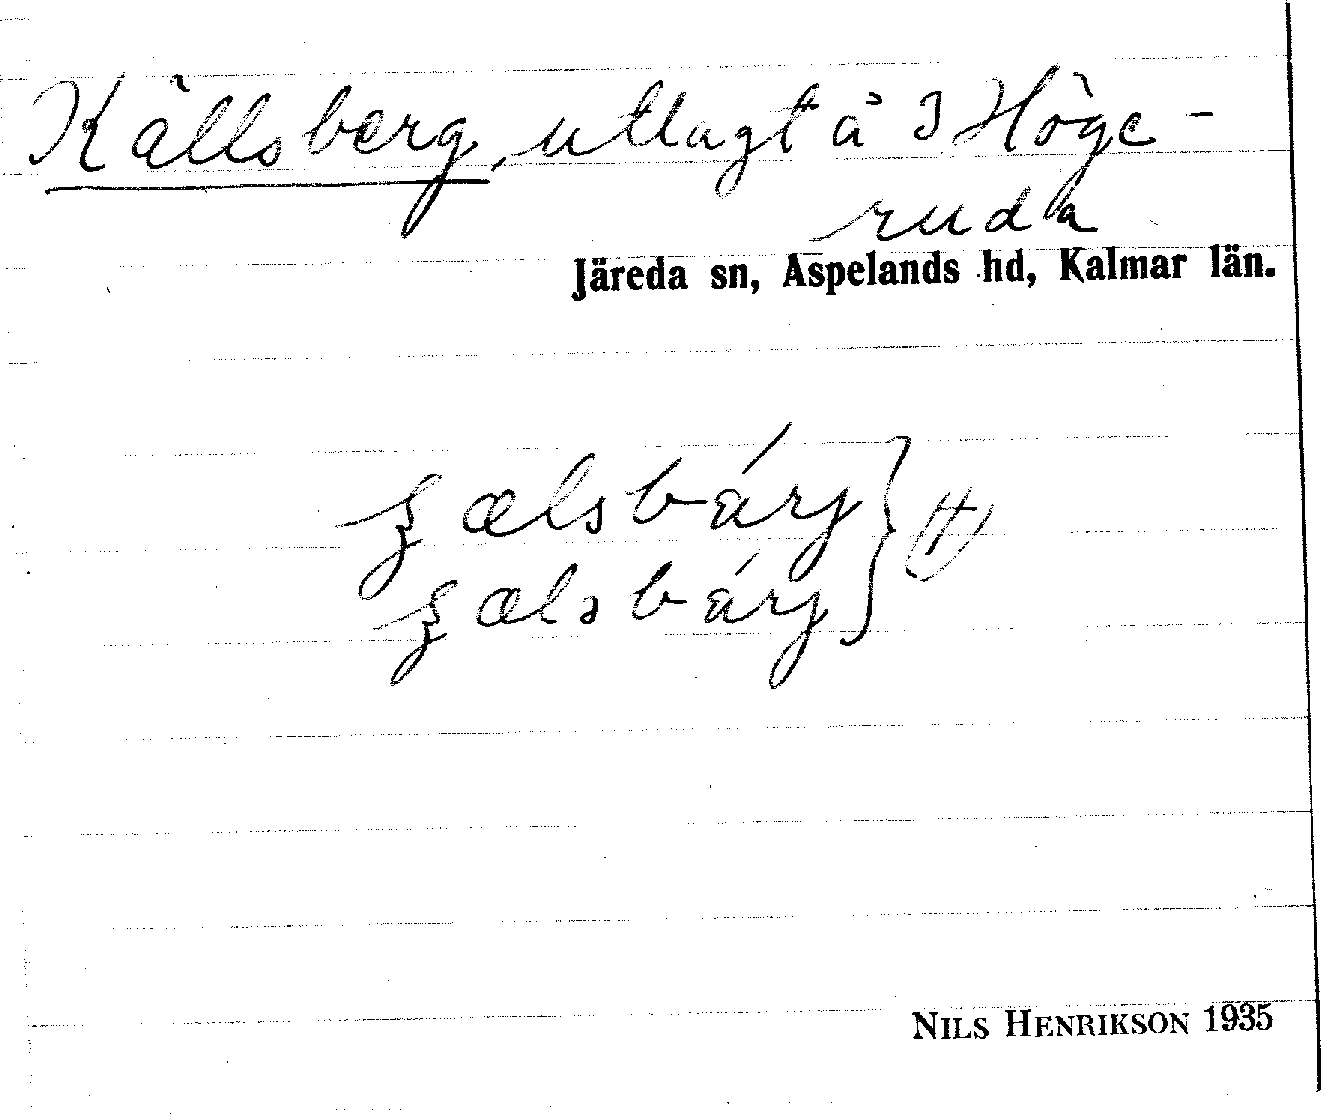 Källsberg, utlagt å 3 Höge-
ruda
Järeda sn, Aspelands hd, Kalmar län.
ʒælsbárj
ʒælsbárj } (H)
NILS HENRIKSON 1935